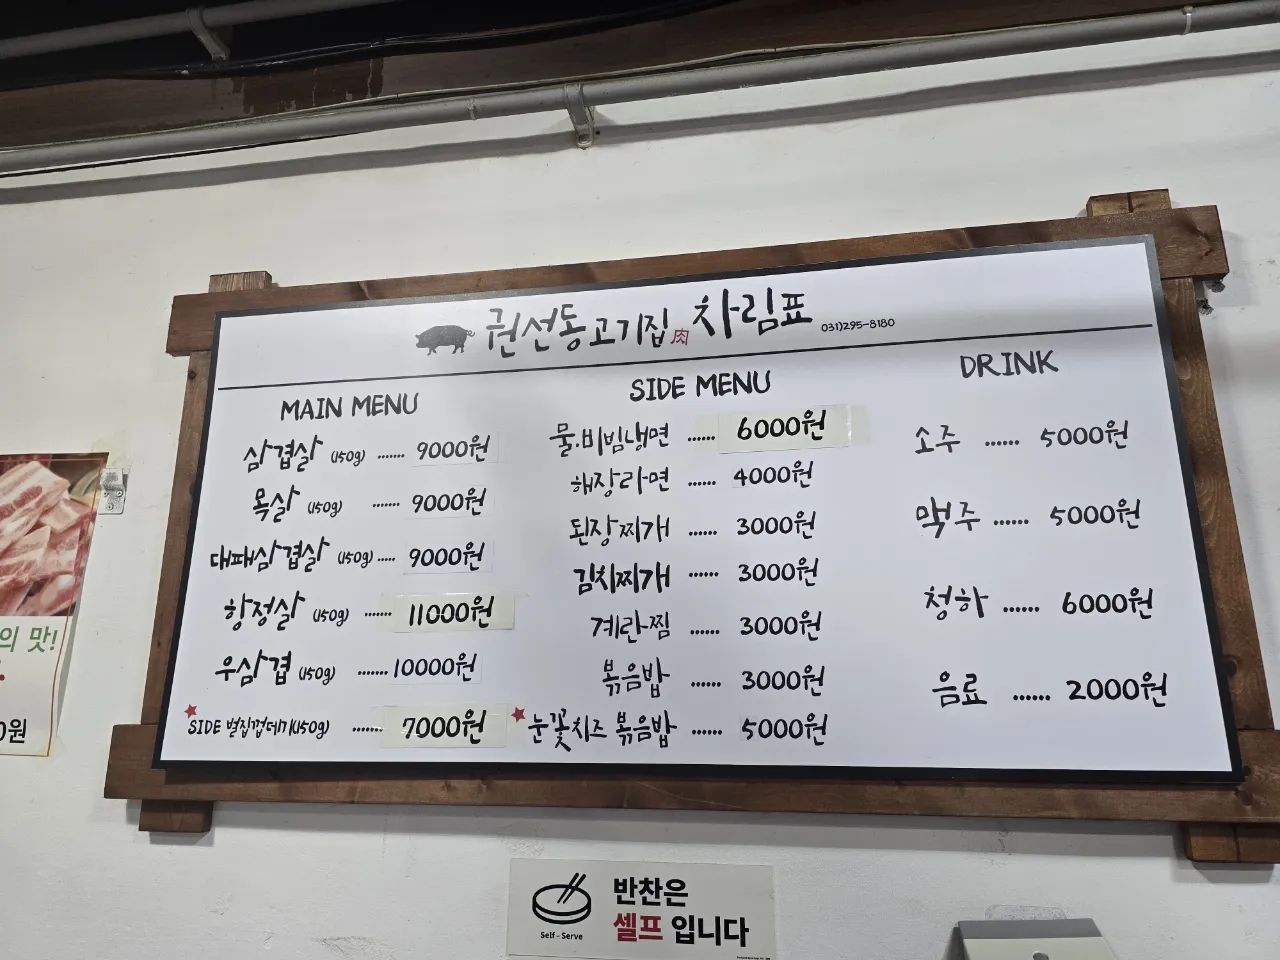 권선동고기집 肉 차림표 031)295-8180
MAIN MENU
삼겹살 (150g) ....... 9000원
목살 (150g) ....... 9000원
대패삼겹살 (150g) ..... 9000원
항정살 (150g) ....... 11000원
우삼겹 (150g) ....... 10000원
SIDE 벌집껍데기(150g) ....... 7000원
SIDE MENU
물.비빔냉면 ...... 6000원
해장라면 ...... 4000원
된장찌개 ...... 3000원
김치찌개 ...... 3000원
계란찜 ...... 3000원
볶음밥 ...... 3000원
눈꽃치즈 볶음밥 ...... 5000원
DRINK
소주 ...... 5000원
맥주 ...... 5000원
청하 ...... 6000원
음료 ...... 2000원
의 맛!
0원
반찬은
셀프 입니다
Self-Serve